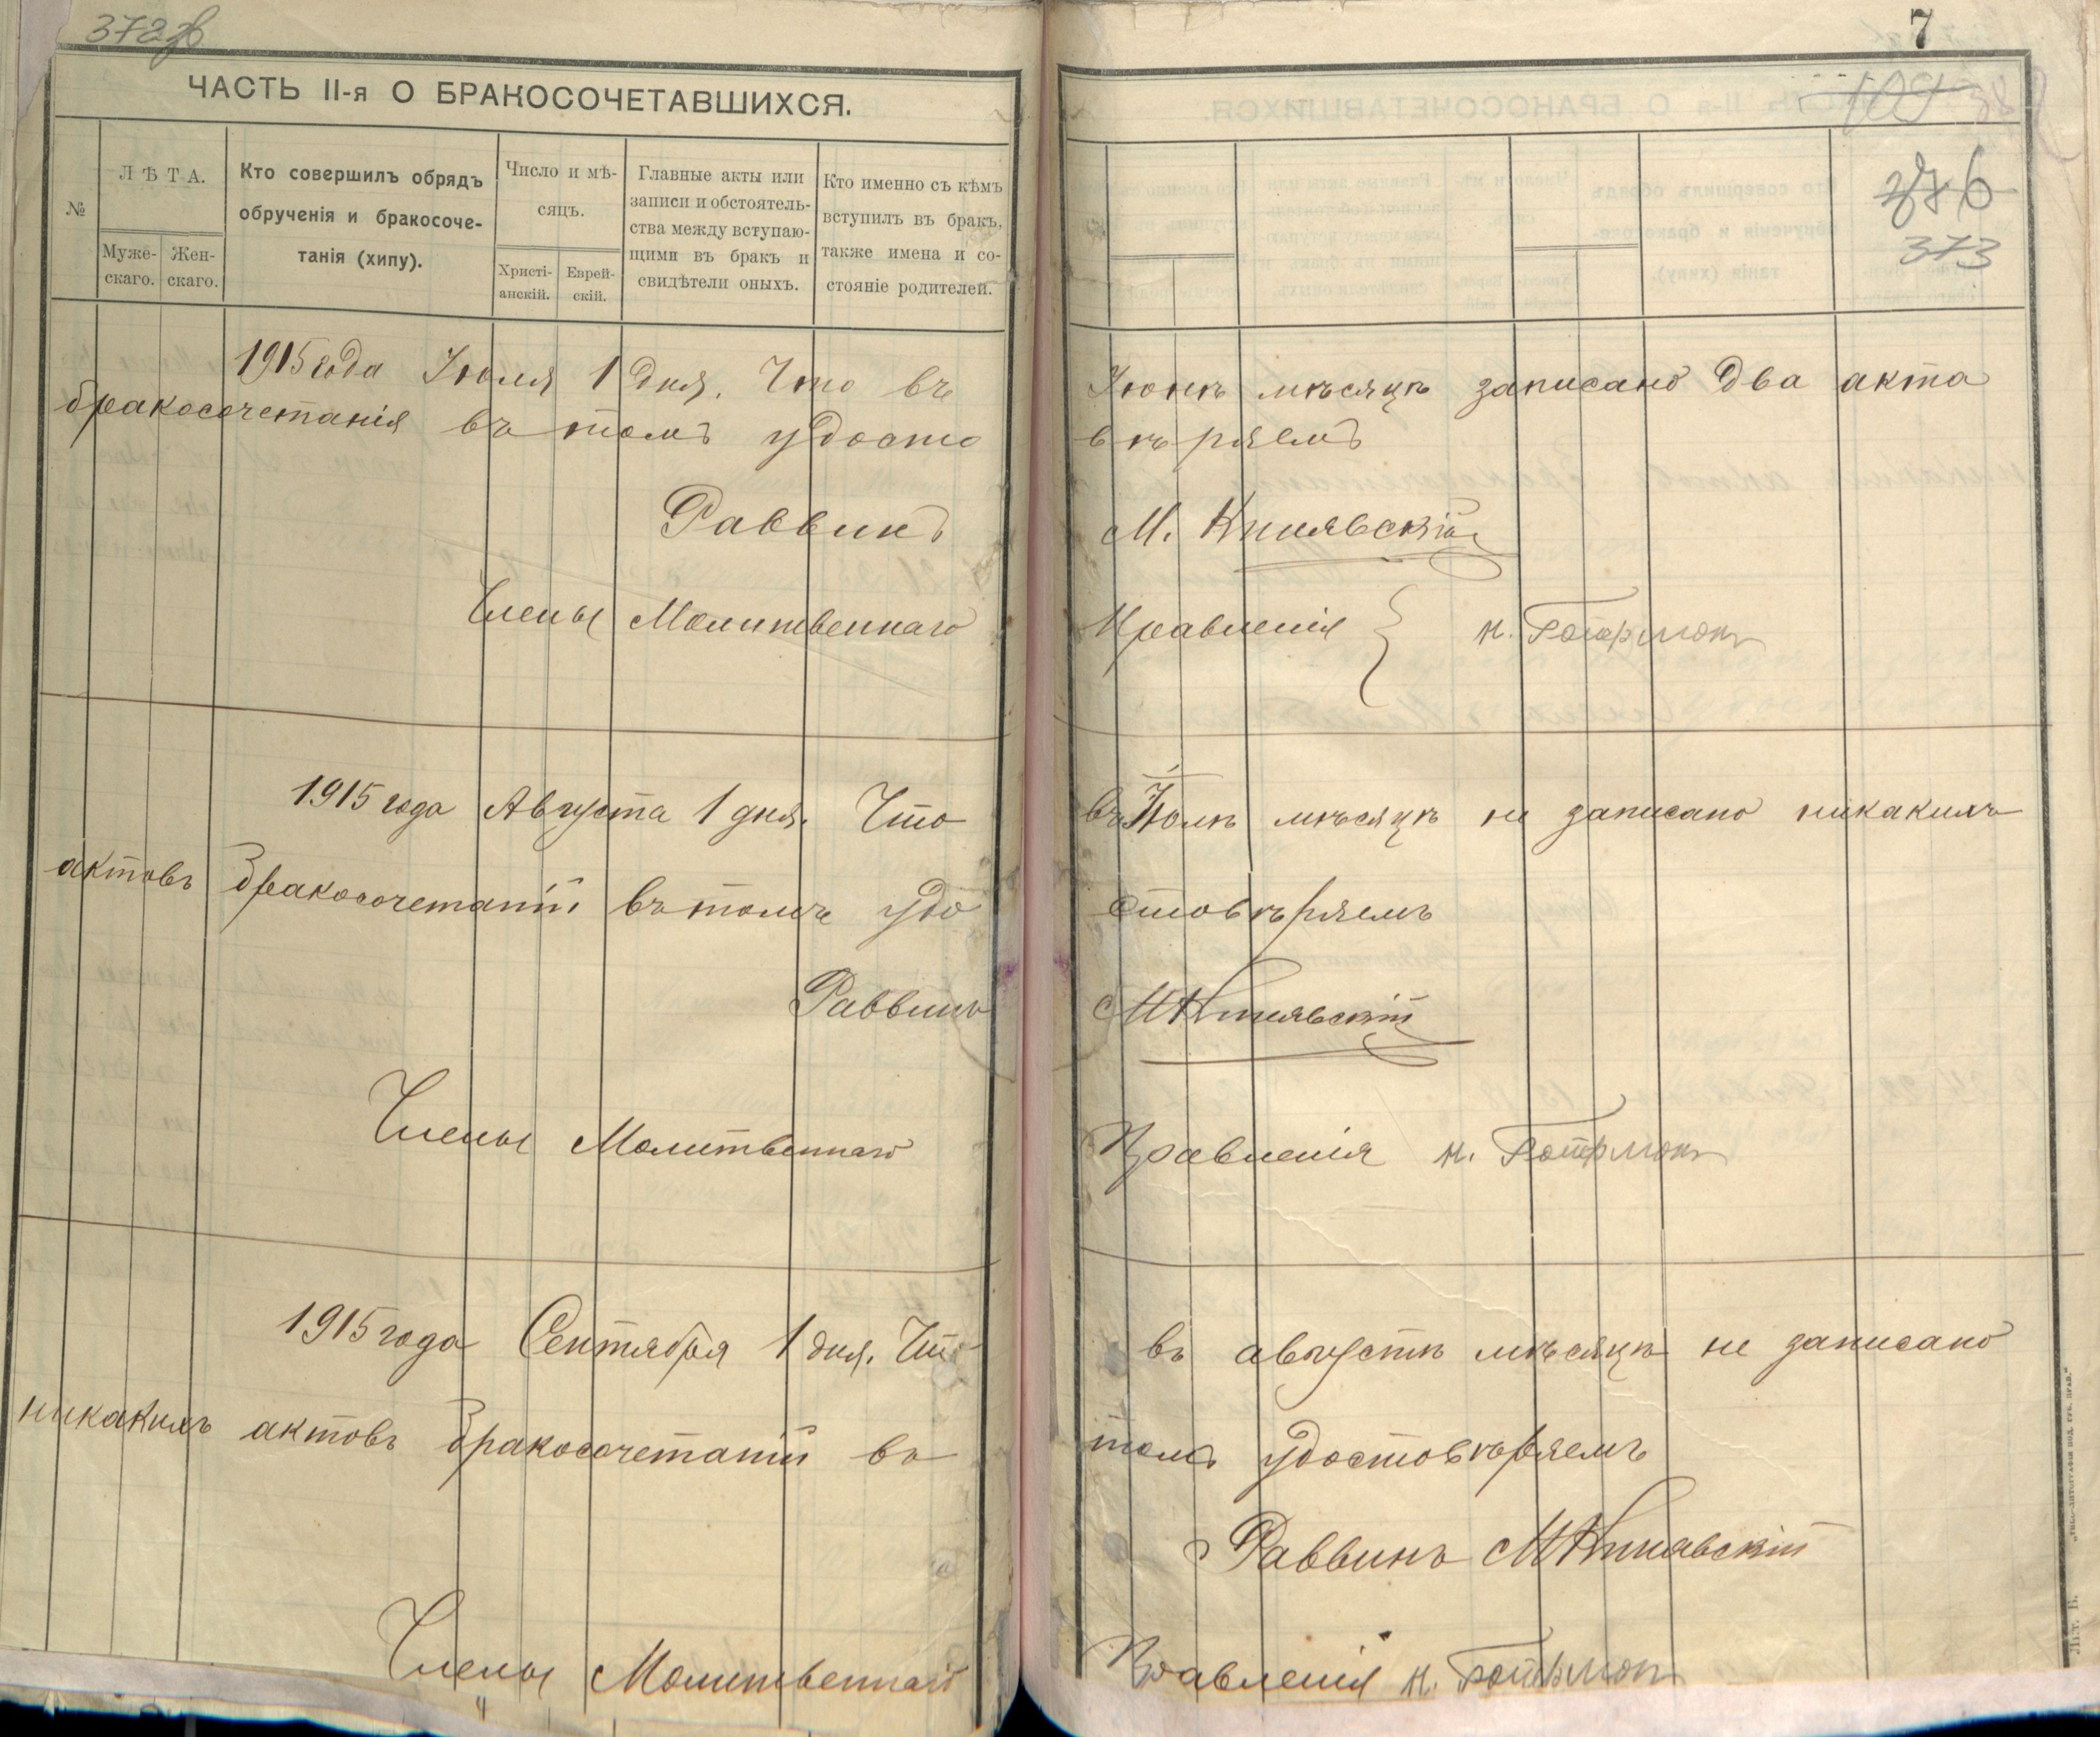 7
ЧАСТЬ II-я О БРАКОСОЧЕТАВШИХСЯ.
№
ЛѢТА.
Муже-
скаго.
Жен-
скаго.
Кто совершилъ обрядъ
обрученія и бракосоче-
танія (хипу).
Число и мѣ-
сяцъ.
Христі-
анскій.
Еврей-
скій.
Главные акты или
записи и обстоятель-
ства между вступаю-
щими въ бракъ и
свидѣтели оныхъ.
Кто именно съ кѣмъ
вступилъ въ бракъ,
также имена и со-
стояніе родителей.
373
1915 года Іюля 1 дня. Что въ Іюнѣ мѣсяцѣ записано два акта
бракосочетанія въ томъ удосто вѣряемъ
Раввинъ М.
Члены Молитвеннаго Правленія Н.
1915 года Августа 1 дня. Что въ Іюлѣ мѣсяцѣ не записано никакихъ
актовъ бракосочетаній въ томъ удо стовѣряемъ
Раввинъ М
Члены Молитвеннаго Правленія Н.
1915 года Сентября 1 дня. Что въ августѣ мѣсяцѣ не записано
никакихъ актовъ бракосочетаній въ томъ удостовѣряемъ
Раввинъ М
Члены Молитвеннаго Правленія Н.